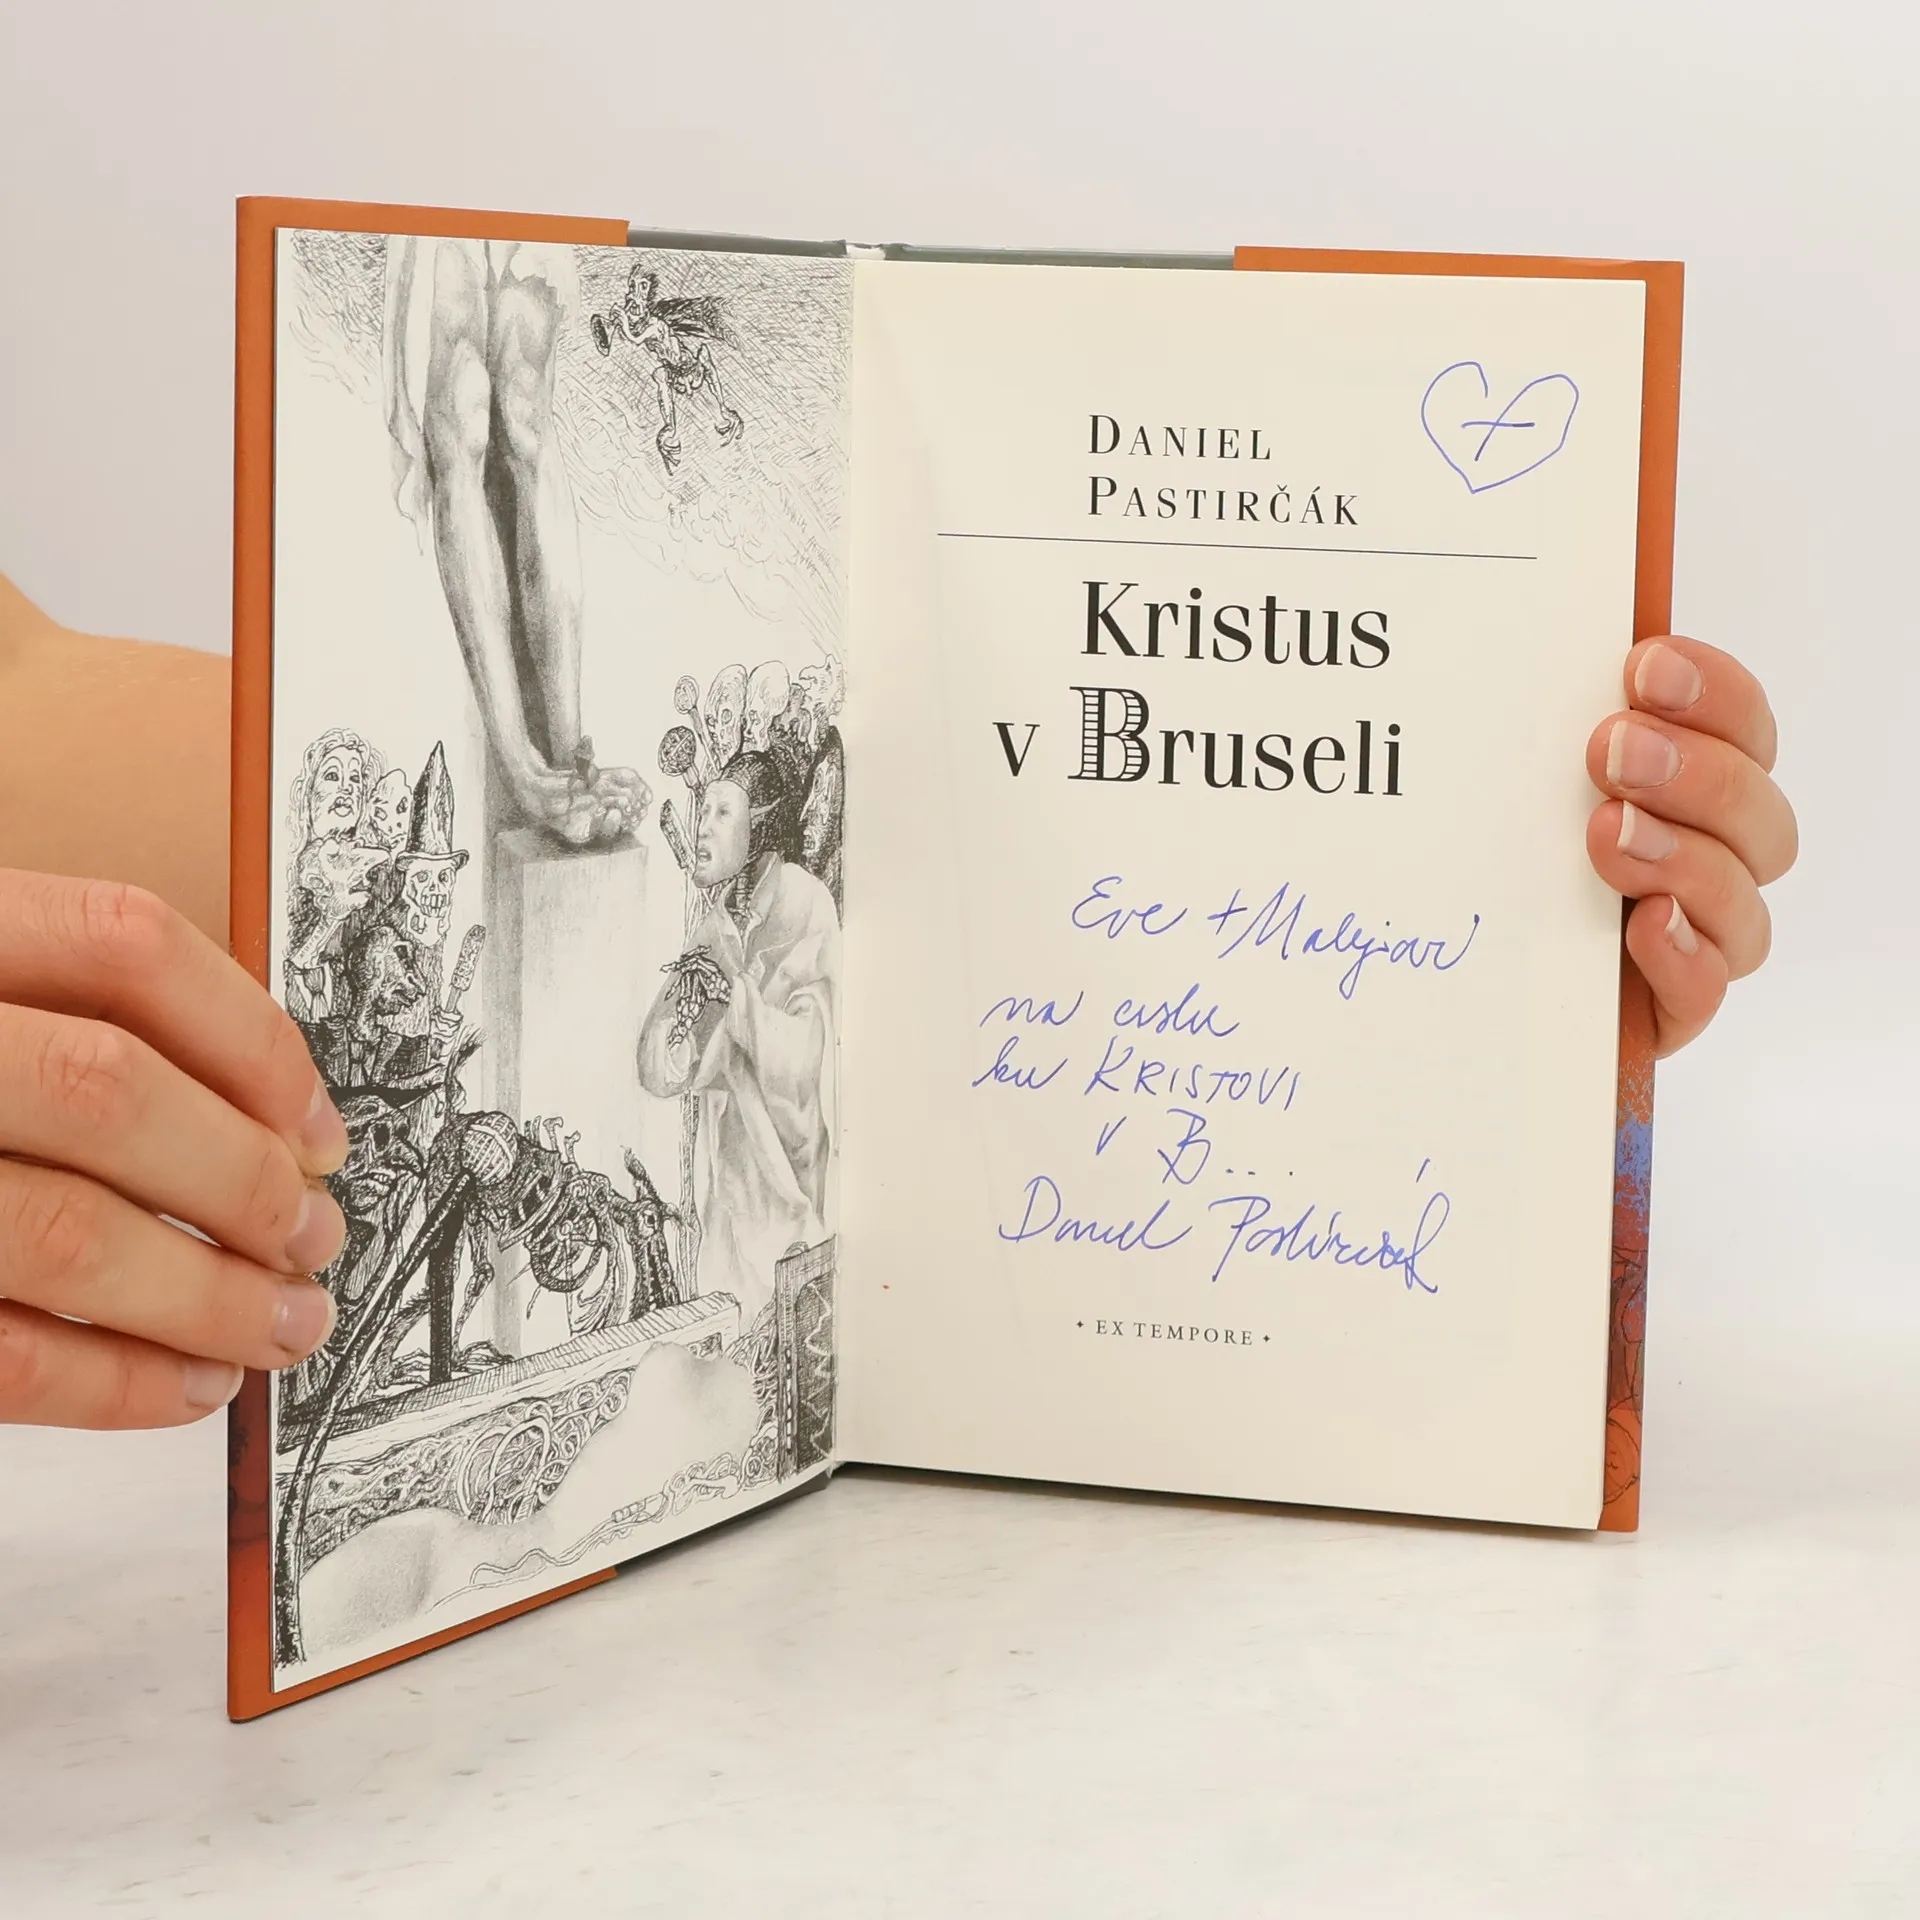 DANIEL
PASTIRČÁK
Kristus
v Bruseli
Eve +
na ceste
ku KRISTOVI
v B...
Daniel Pastirčák
✦ EX TEMPORE ✦